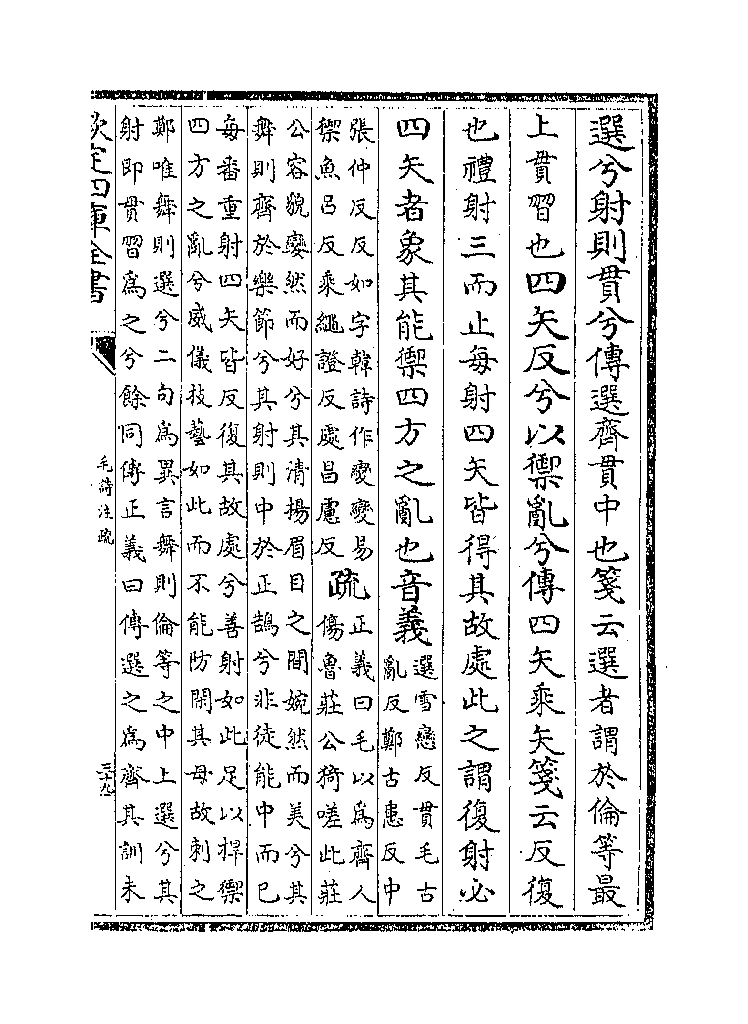 選兮射則貫兮傳選齊貫中也箋云選者謂於倫等最
上貫習也四矢反兮以禦亂兮傳四矢乘矢箋云反復
也禮射三而止每射四矢皆得其故處此之謂復射必
四矢者象其能禦四方之亂也音義選雪戀反貫毛古
亂反鄭古患反中
張仲反反如字韓詩作變變易
禦魚呂反乘繩證反處昌慮反
疏正義曰毛以為齊人
傷魯莊公猗嗟此莊
公容貌孌然而好兮其清揚眉目之間婉然而美兮其
舞則齊於樂節兮其射則中於正鵠兮非徒能中而已
每番重射四矢皆反復其故處兮善射如此足以捍禦
四方之亂兮威儀技藝如此而不能防閑其母故刺之
鄭唯舞則選兮二句為異言舞則倫等之中上選兮其
射即貫習為之兮餘同傳正義曰傳選之為齊其訓未
欽定四庫全書
毛詩注疏
三十九